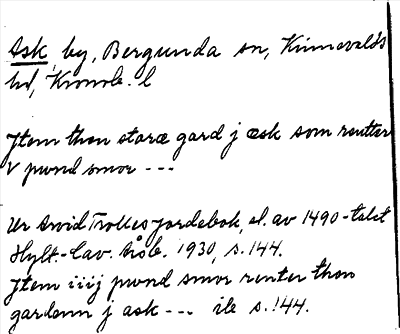 Ask, by, Bergunda sn, Kinnevalds
hd, Kronob. l
Jtem then staræ gard j æsk som rentter
V pwnd smor ---
Ur Arvid Trolles Jordebok, sl. av 1490-talet
Hylt.-Cav. Årsb. 1930, s. 144.
Jtem iiij pwnd smor renter then
gardenn j ask --- ib s. 144.